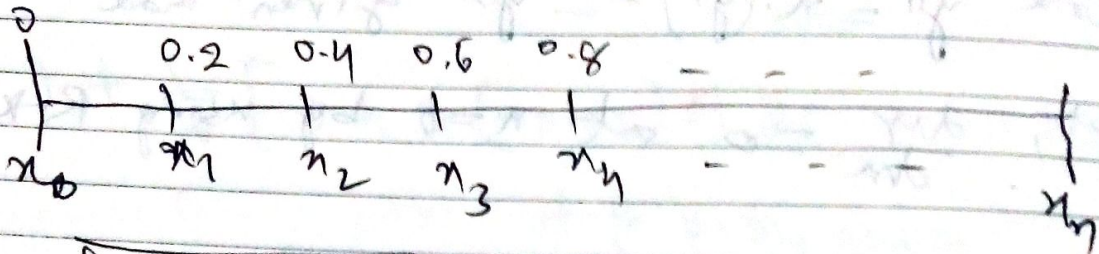 0
0.2 0.4 0.6 0.8 - - -
x₀ x₁ x₂ x₃ x₄ - - - xₙ